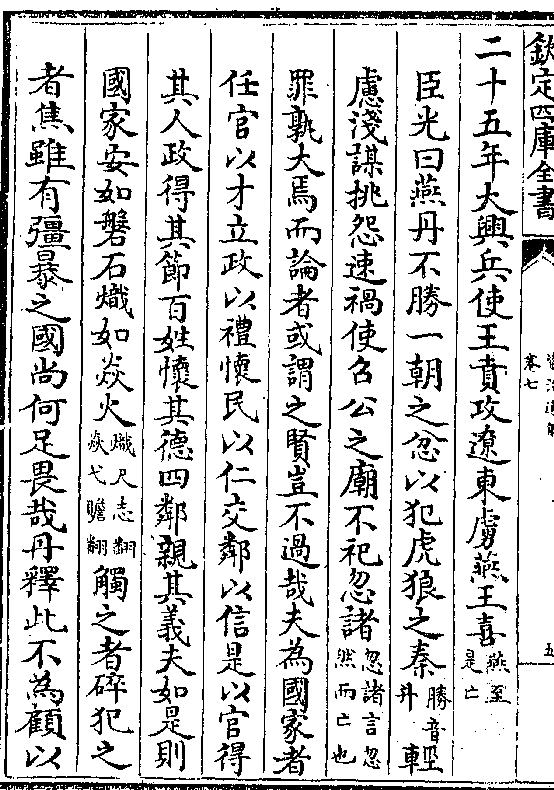 欽定四庫全書
卷七
二十五年大興兵使王賁攻遼東虜燕王喜燕至是亡
臣光曰燕丹不勝一朝之忿以犯虎狼之秦勝音升輕
慮淺謀挑怨速禍使召公之廟不祀忽諸忽諸言忽然而亡也
罪孰大焉而論者或謂之賢豈不過哉夫為國家者
任官以才立政以禮懷民以仁交鄰以信是以官得
其人政得其節百姓懷其德四鄰親其義夫如是則
國家安如磐石熾如焱火熾尺志翻焱弋贍翻觸之者碎犯之
者焦雖有彊暴之國尚何足畏哉丹釋此不為顧以